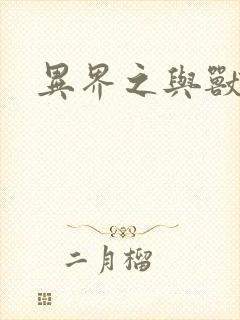 異界之與獸
二月榴